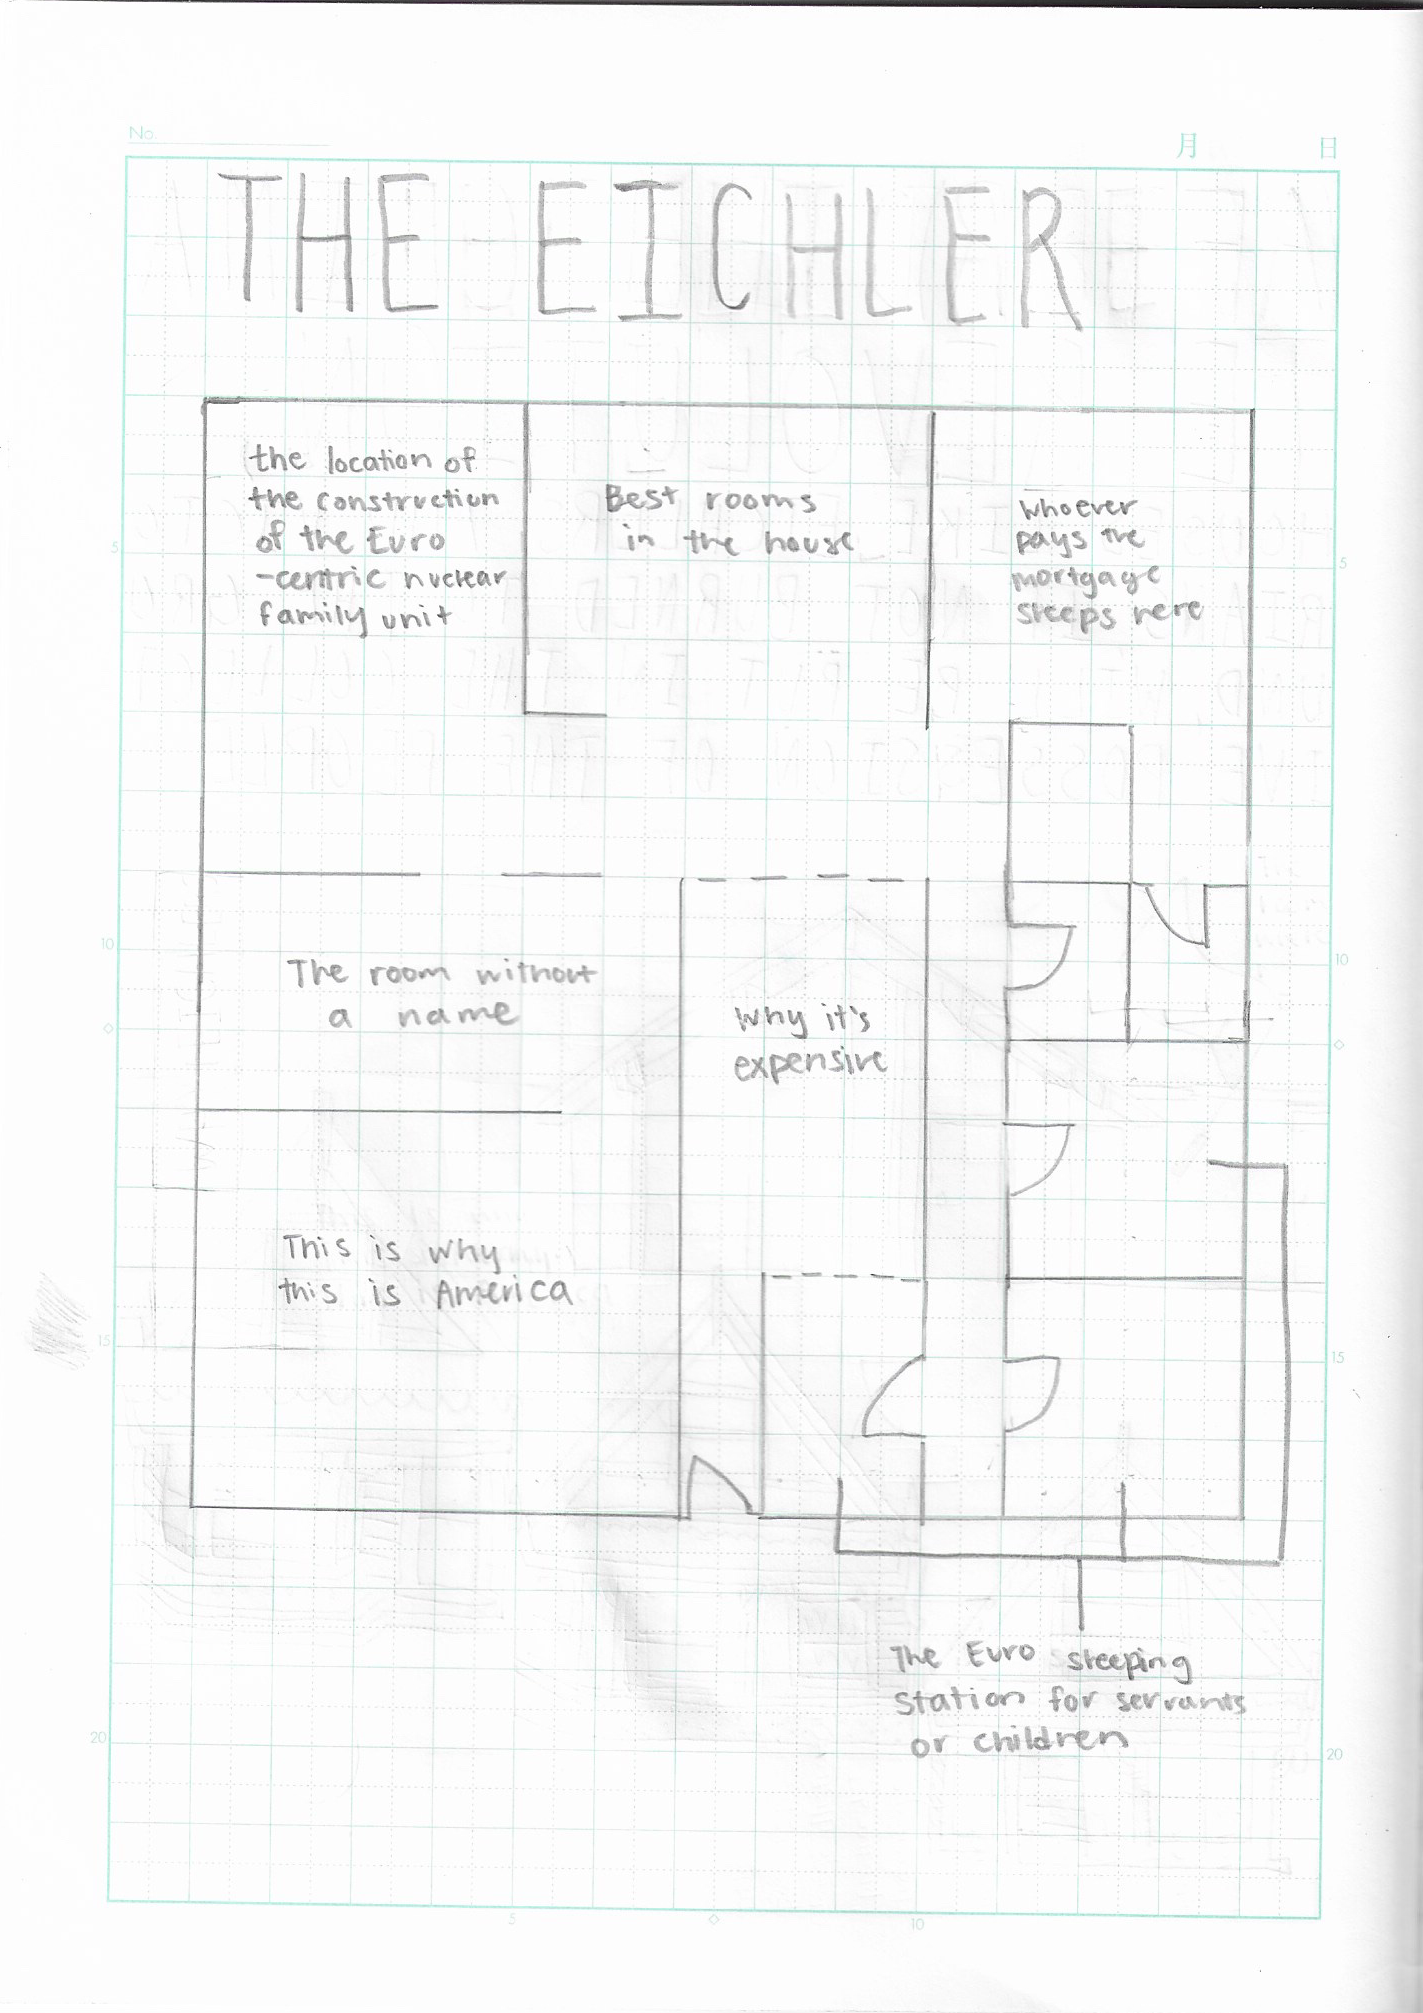 No.
月 日
THE EICHLER
the location of
the construction
of the Euro
-centric nuclear
family unit
Best rooms
in the house
whoever
pays the
mortgage
sleeps here
5
5
10
10
The room without
a name
Why it's
expensive
This is why
this is America
15
15
The Euro sleeping
station for servants
or children
20
20
5
10